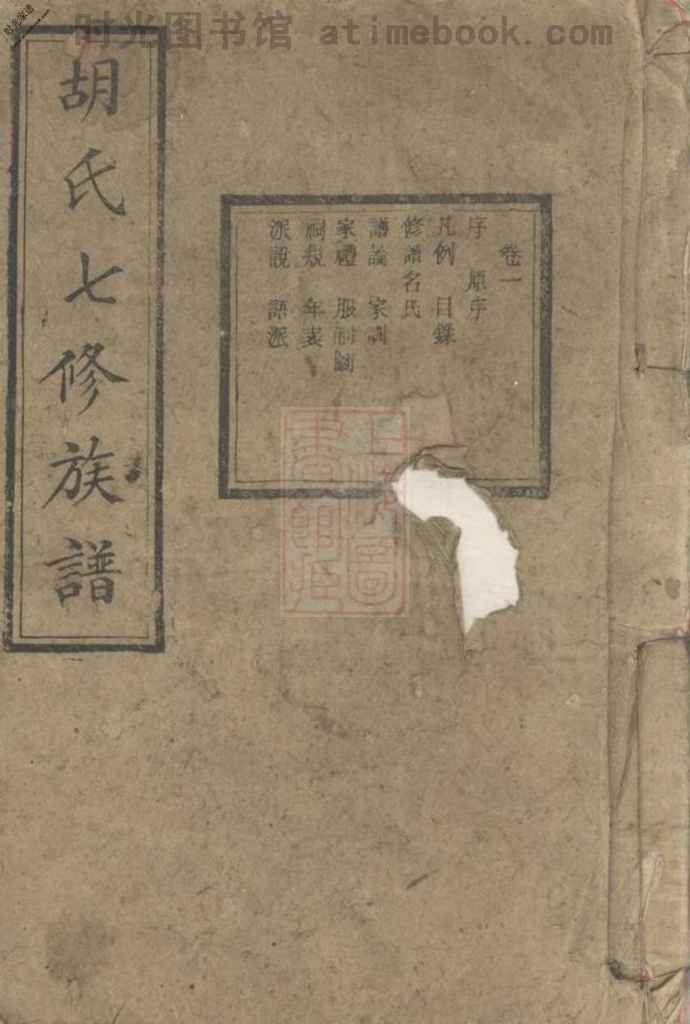 时光图书馆 atimebook.com
胡氏七修族譜
卷一
序 原序
凡例 目錄
修譜名氏
譜論 家訓
家禮 服制圖
祠規 年表
派說 語派